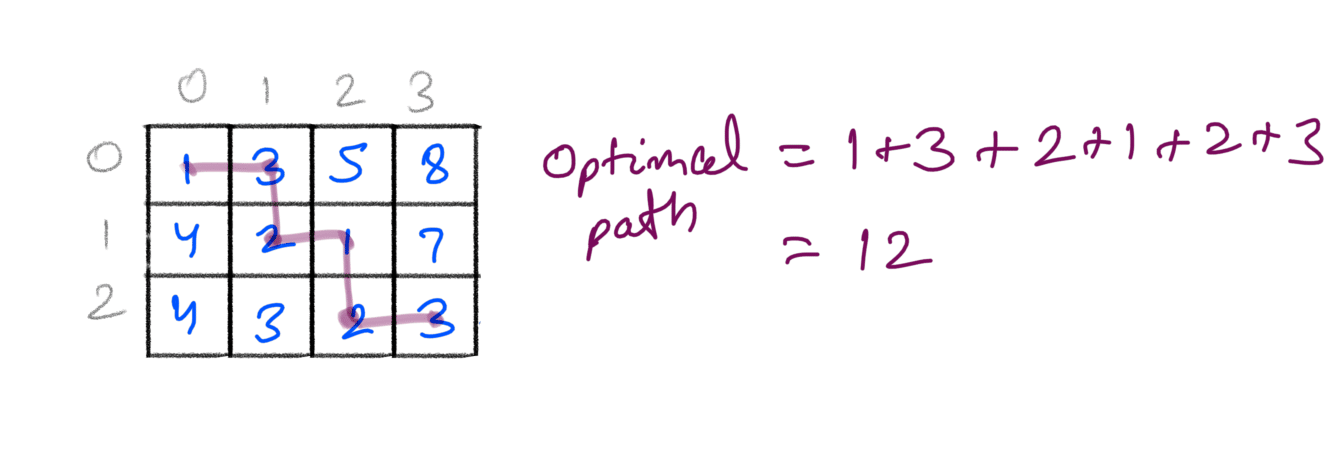 0 1 2 3
0 1 3 5 8
1 4 2 1 7
2 4 3 2 3
Optimal path = 1+3+2+1+2+3
= 12